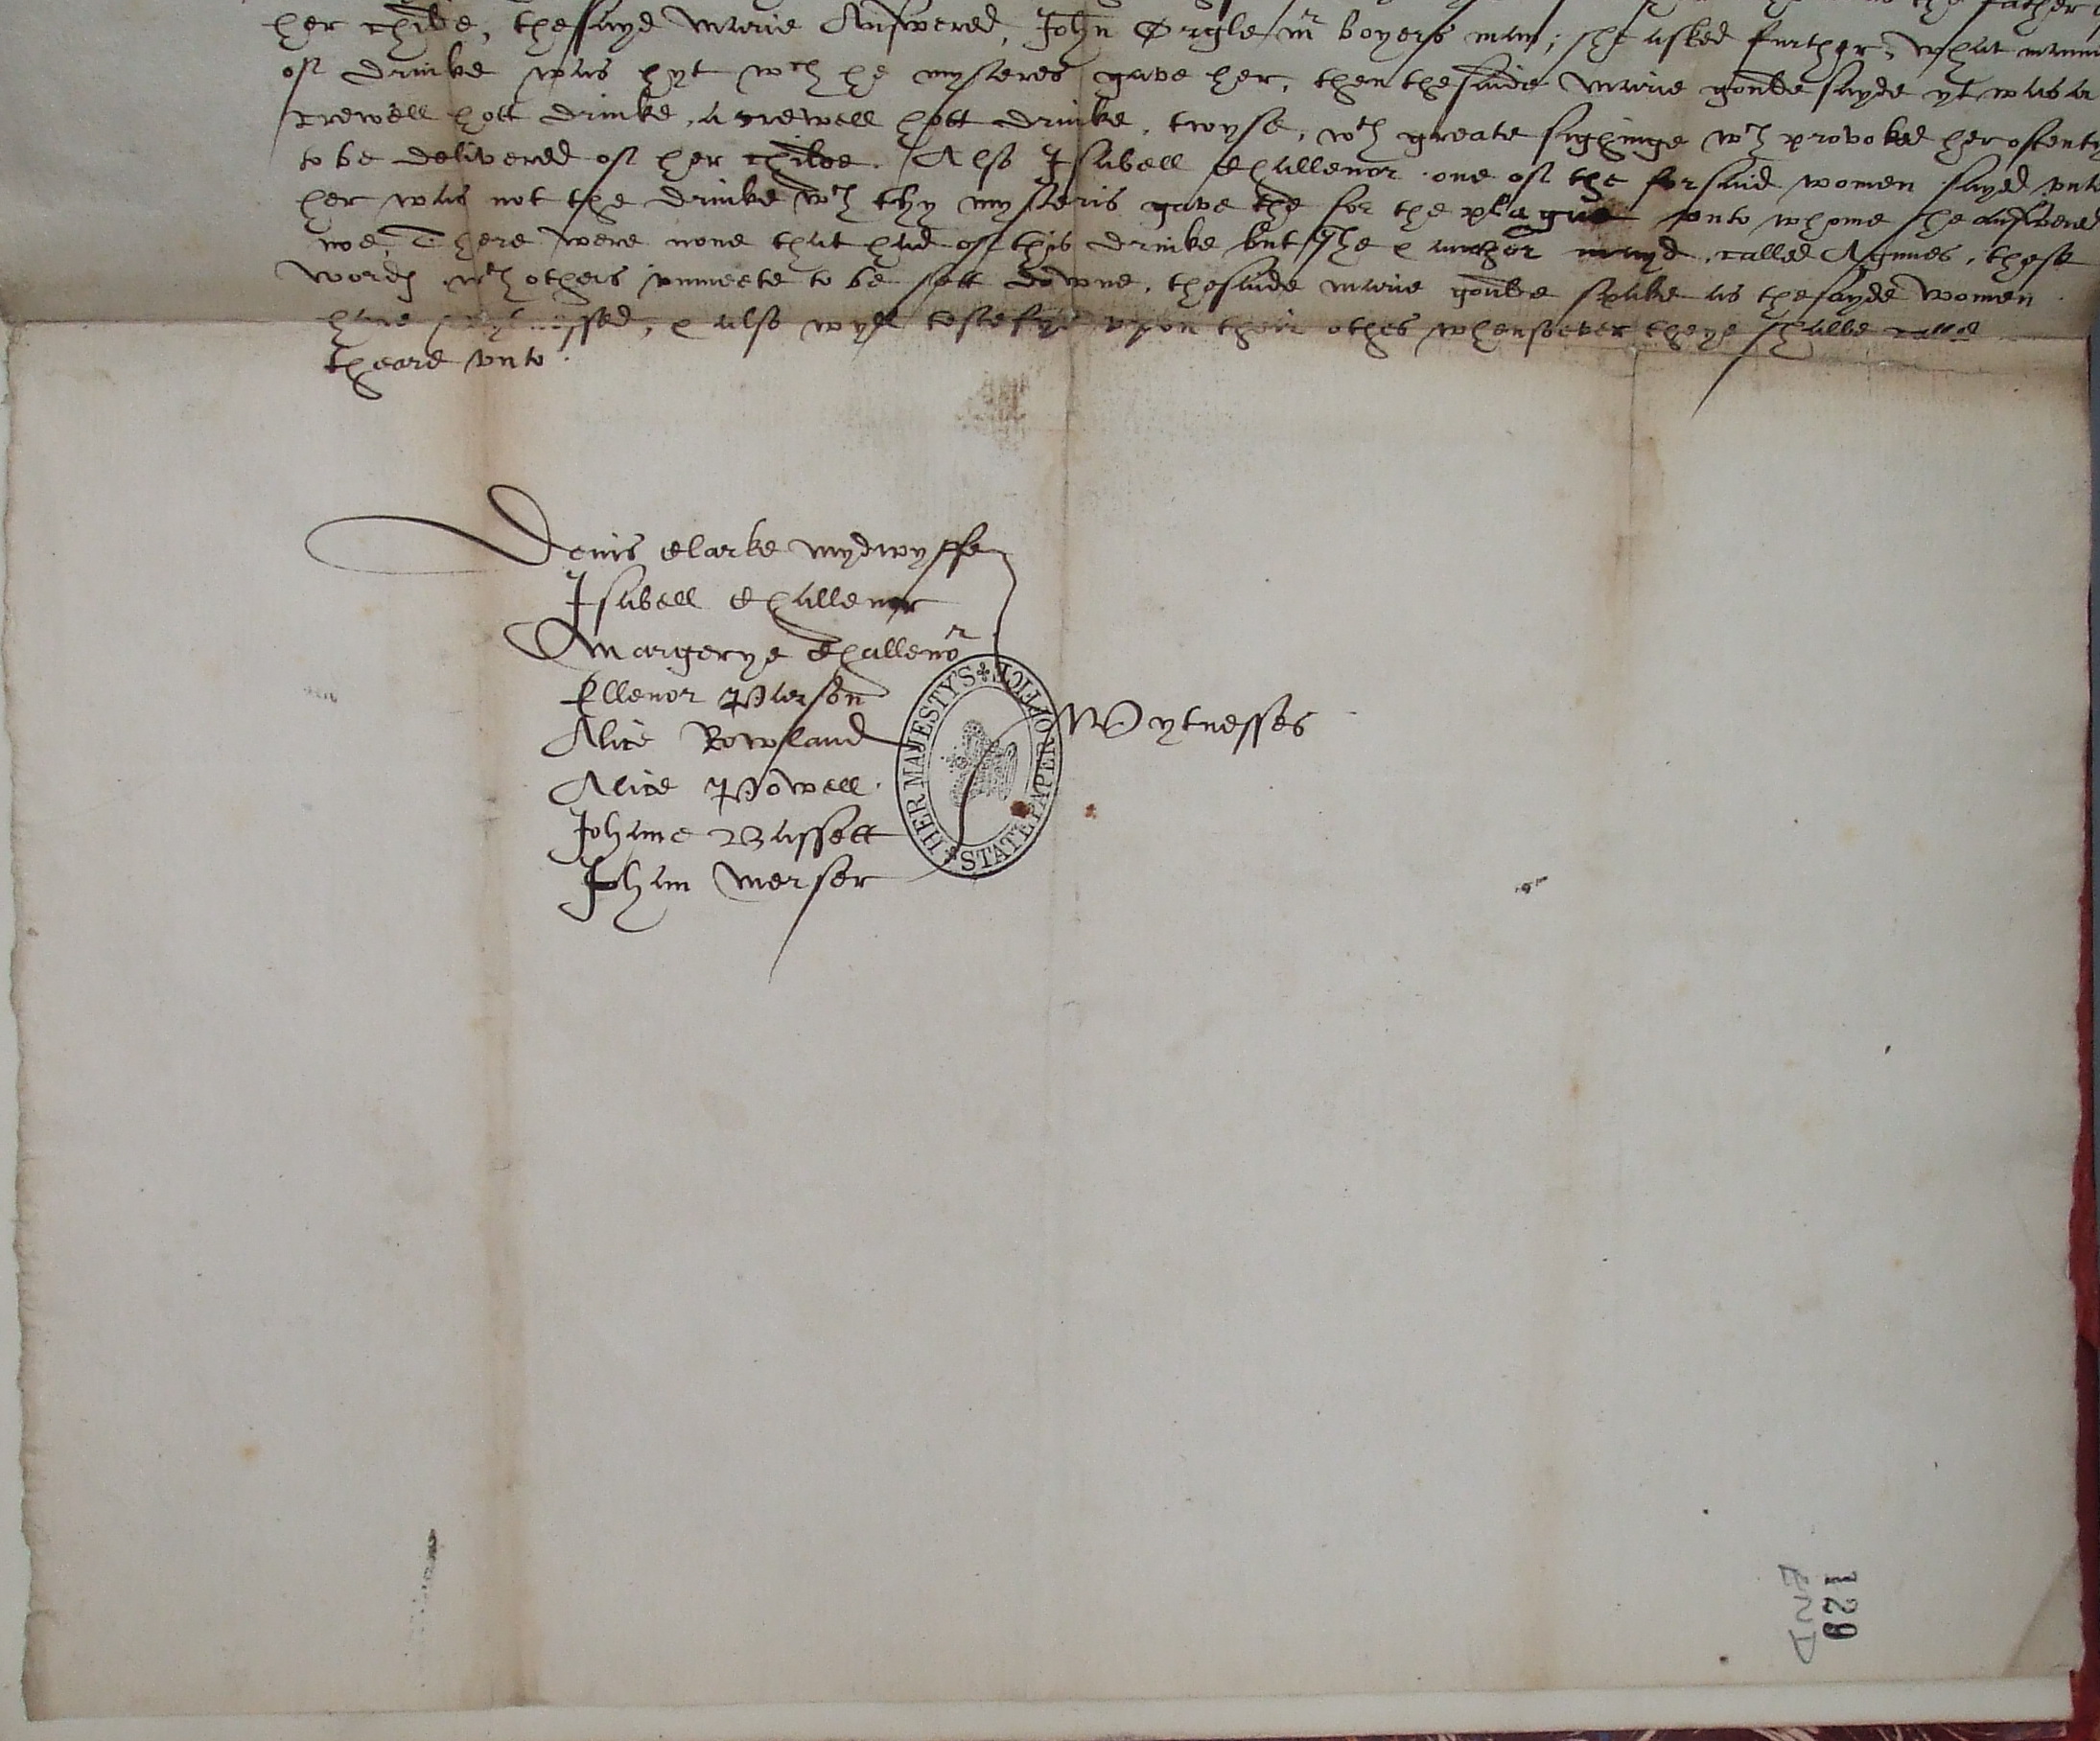 her childe, the sayd Marie Answered, John Orgle mr boyers man; she asked further, what mann
of drinke was hyt wch he mysteres gave her, then the saide Marie goulde sayde yt was a
crewell hott drinke, a crewell hott drinke, twyse, wth greate sighinge wch provoked her
to be delivered of her childe. Also Isabell Challenor one of the forsaid women sayed unto
her was not the drinke wch thy mysteris gave the for the plague unto whome she answered
noe, There were none that had of this drinke but she & another mayd, called Agnnes, these
words wth others unmeete to be sett downe, the saide Marie goulde spake as the sayde women
have & also wyll testefye upon their othes whensoever theye shalbe called
theare unto.
Denis Clarke mydwyffe
Isabell Challenor
Margerye Challenor
Ellenor Parson
Alice Rowland
Alice Powell
Johane Bassett
Johan Merser
Wytnesses
HER MAJESTY'S STATE PAPER OFFICE
129
END